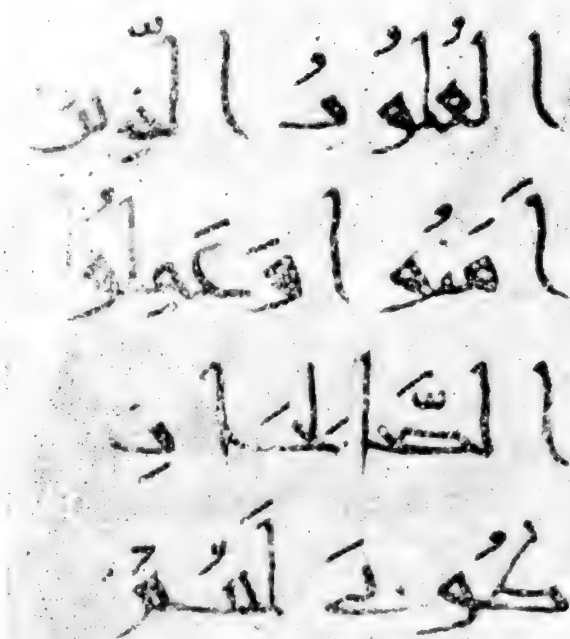 القُلُوبُ الَّذِينَ
اَمَنُوا وَعَمِلُوا
الصَّالِحَاتِ
طُوبَى لَهُمْ